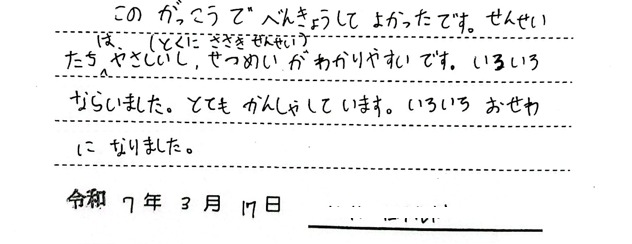 この がっこう で べんきょうして よかったです。せんせい
たち は、(とくに ささき せんせい) やさしいし、せつめい が わかりやすい です。いろいろ
ならいました。とても かんしゃして います。いろいろ おせわ
に なりました。
令和 7 年 3 月 17 日